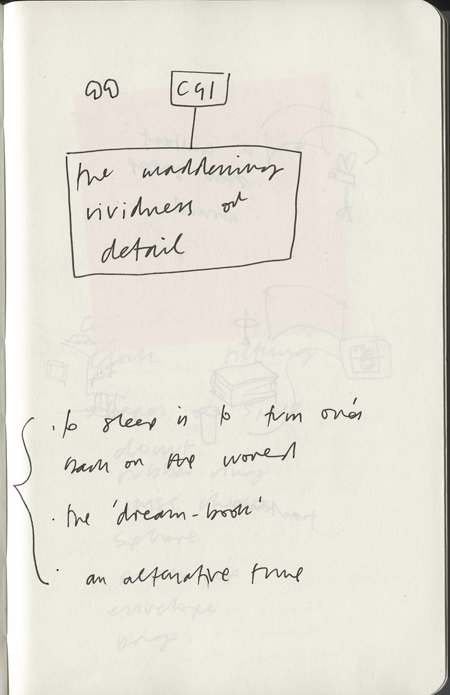 CGI
the maddening
vividness of
detail
· to sleep is to turn one's
back on the world
· the 'dream-book'
· an alternative time